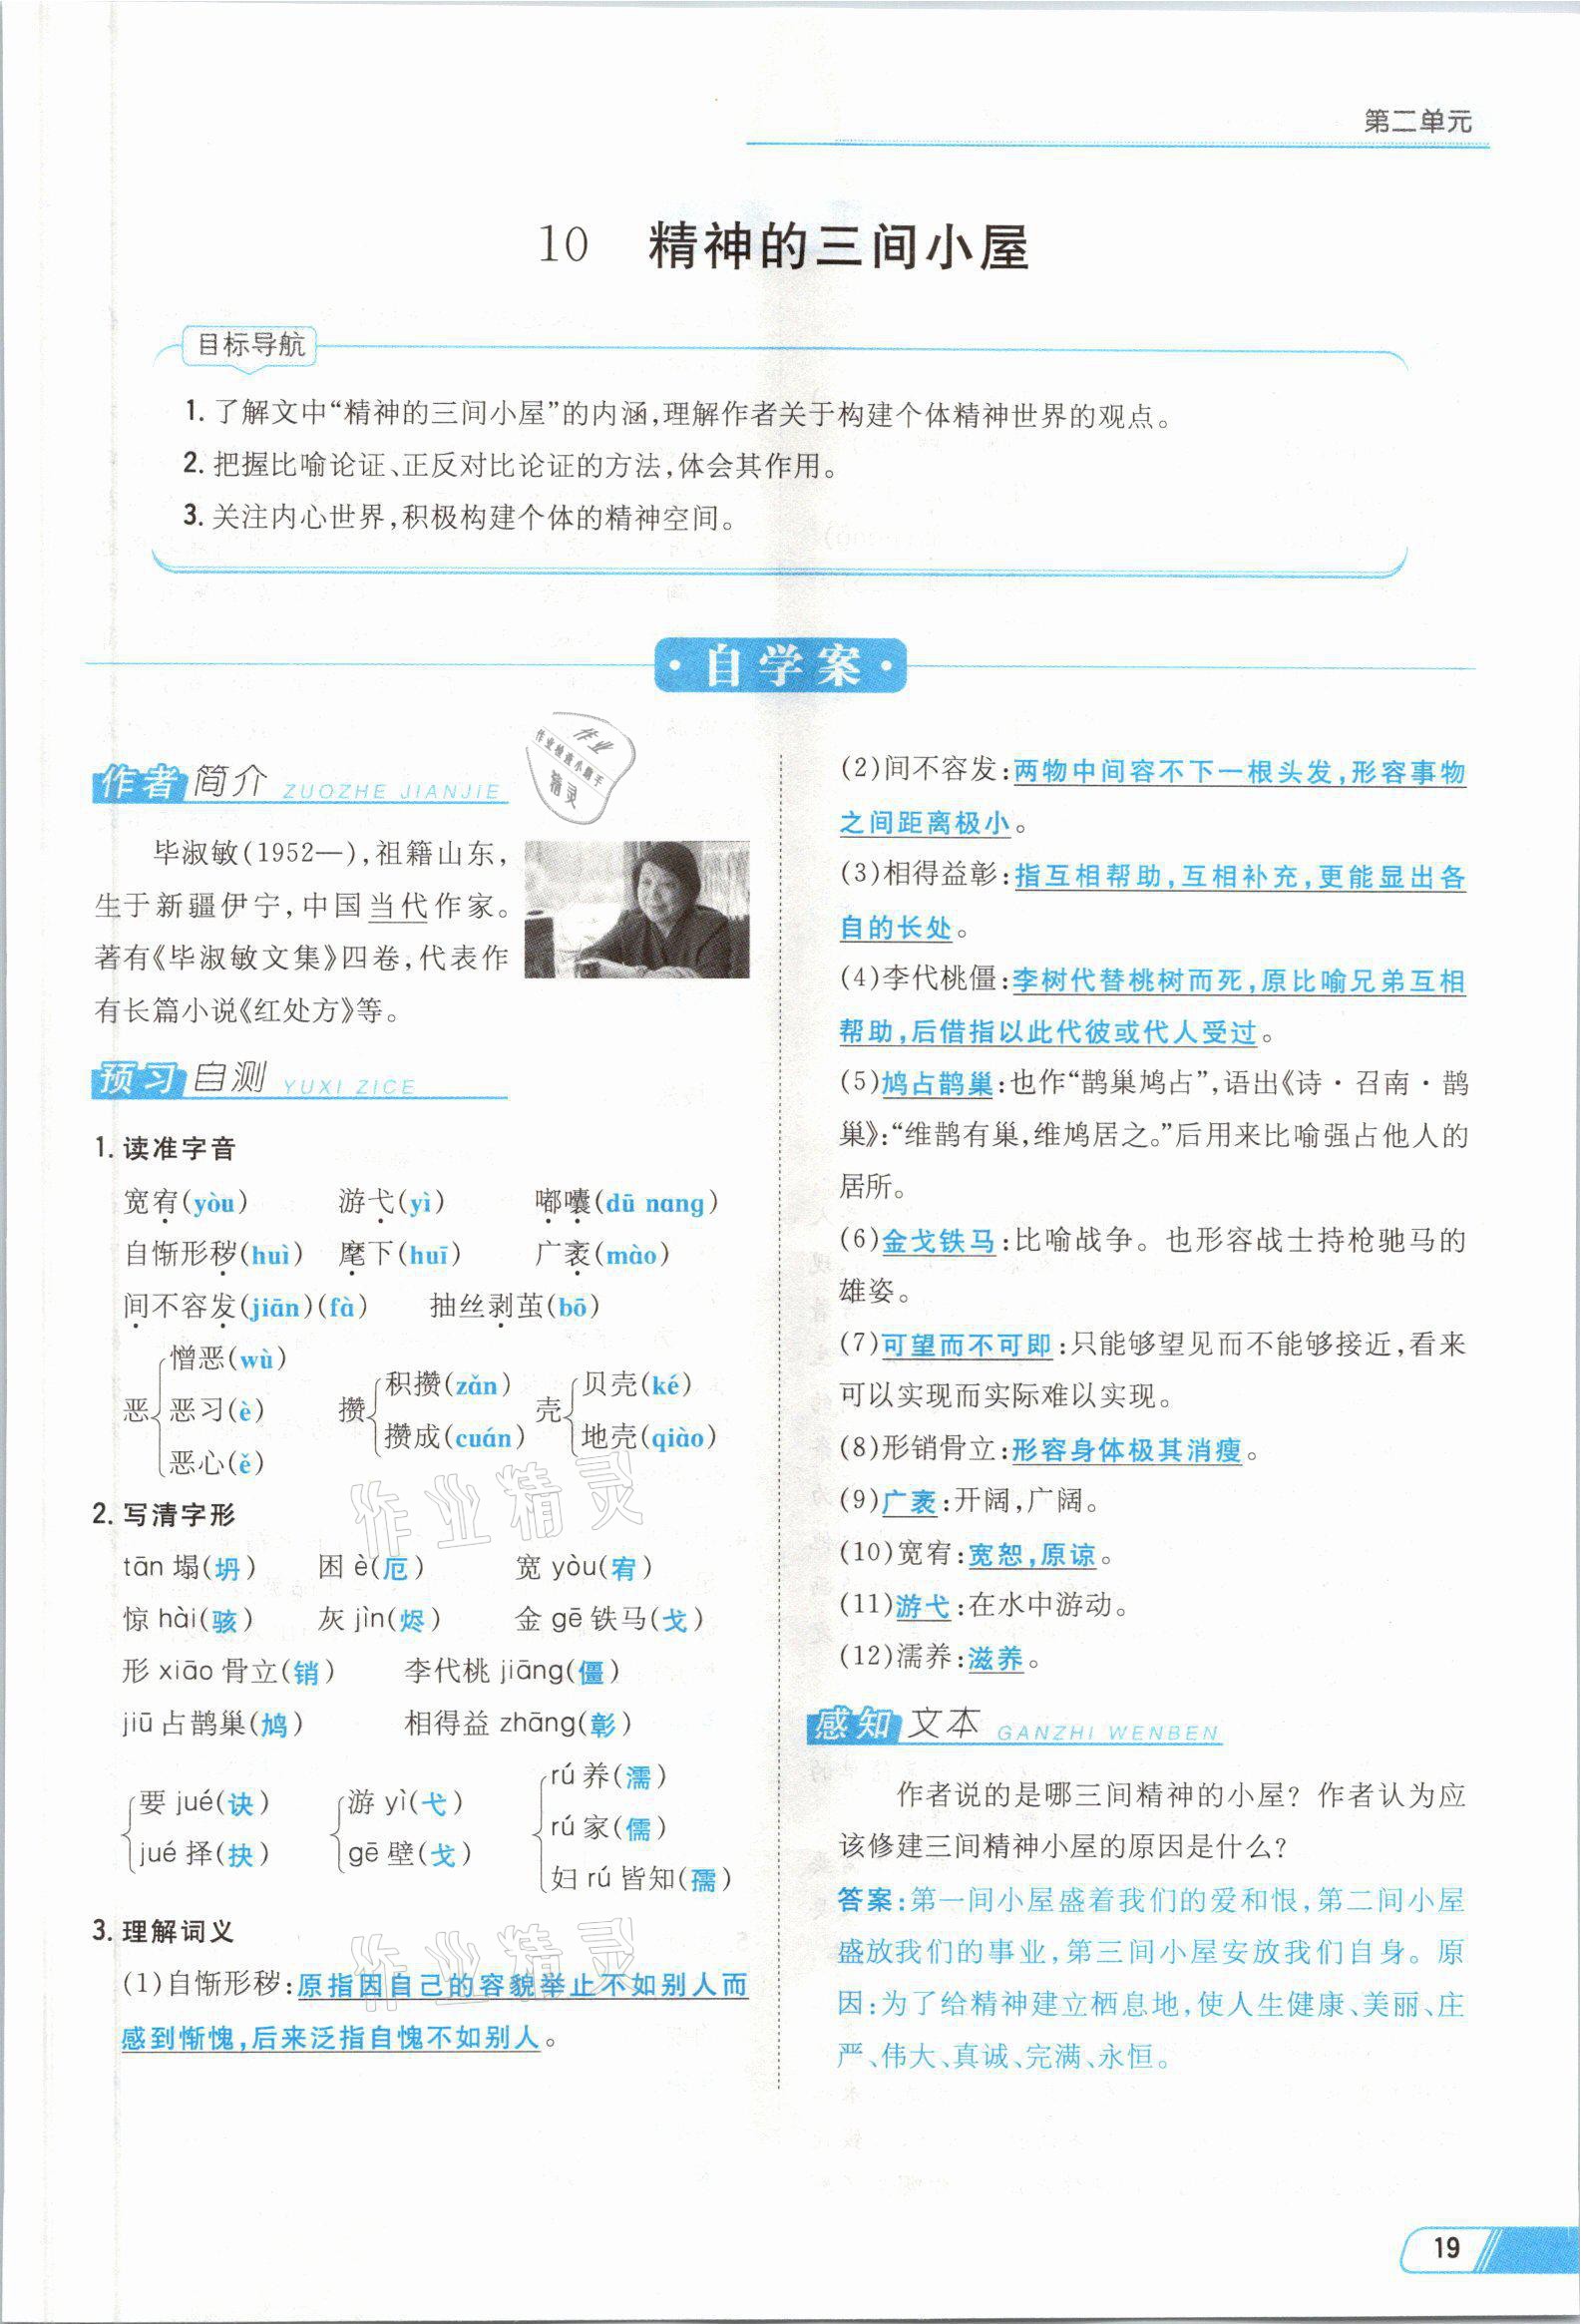 第二单元
10 精神的三间小屋
目标导航
1. 了解文中“精神的三间小屋”的内涵,理解作者关于构建个体精神世界的观点。
2. 把握比喻论证、正反对比论证的方法,体会其作用。
3. 关注内心世界,积极构建个体的精神空间。
·自学案·
作者简介 ZUOZHE JIANJIE
作业
作业检查小助手
精灵
毕淑敏(1952—),祖籍山东,
生于新疆伊宁,中国当代作家。
著有《毕淑敏文集》四卷,代表作
有长篇小说《红处方》等。
预习自测 YUXI ZICE
1. 读准字音
宽宥(yòu) 游弋(yì) 嘟囔(dū nang)
自惭形秽(huì) 麾下(huī) 广袤(mào)
间不容发(jiān)(fà) 抽丝剥茧(bō)
恶 憎恶(wù) 恶习(è) 恶心(ě)
攒 积攒(zǎn) 攒成(cuán)
壳 贝壳(ké) 地壳(qiào)
2. 写清字形
tān 塌(坍) 困 è(厄) 宽 yòu(宥)
惊 hài(骇) 灰 jìn(烬) 金 gē 铁马(戈)
形 xiāo 骨立(销) 李代桃 jiāng(僵)
jiū 占鹊巢(鸠) 相得益 zhāng(彰)
要 jué(诀) jué 择(抉)
游 yì(弋) gē 壁(戈)
rú 养(濡) rú 家(儒) 妇 rú 皆知(孺)
3. 理解词义
(1)自惭形秽:原指因自己的容貌举止不如别人而
感到惭愧,后来泛指自愧不如别人。
作业精灵
作业精灵
(2)间不容发:两物中间容不下一根头发,形容事物
之间距离极小。
(3)相得益彰:指互相帮助,互相补充,更能显出各
自的长处。
(4)李代桃僵:李树代替桃树而死,原比喻兄弟互相
帮助,后借指以此代彼或代人受过。
(5)鸠占鹊巢:也作“鹊巢鸠占”,语出《诗·召南·鹊
巢》:“维鹊有巢,维鸠居之。”后用来比喻强占他人的
居所。
(6)金戈铁马:比喻战争。也形容战士持枪驰马的
雄姿。
(7)可望而不可即:只能够望见而不能够接近,看来
可以实现而实际难以实现。
(8)形销骨立:形容身体极其消瘦。
(9)广袤:开阔,广阔。
(10)宽宥:宽恕,原谅。
(11)游弋:在水中游动。
(12)濡养:滋养。
感知文本 GANZHI WENBEN
作者说的是哪三间精神的小屋?作者认为应
该修建三间精神小屋的原因是什么?
答案:第一间小屋盛着我们的爱和恨,第二间小屋
盛放我们的事业,第三间小屋安放我们自身。原
因:为了给精神建立栖息地,使人生健康、美丽、庄
严、伟大、真诚、完满、永恒。
19